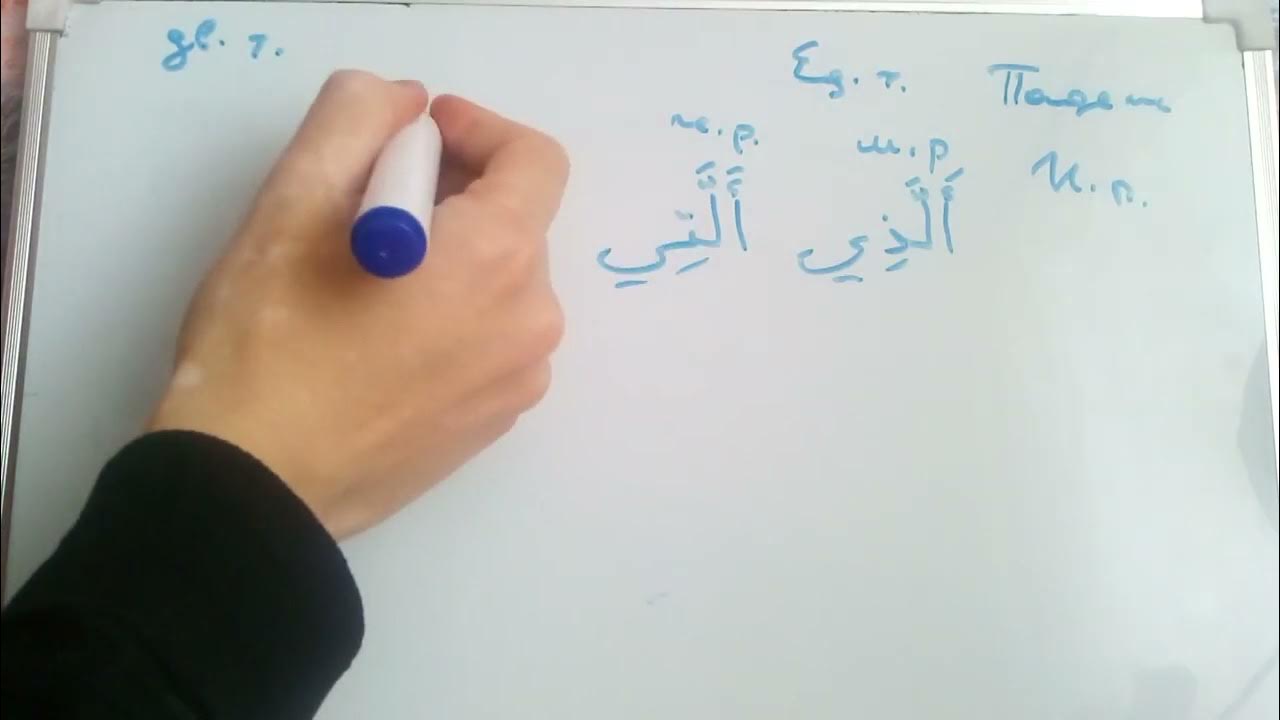 дв. ч. Ед. ч. Падеж
ж.р. м.р И.п.
أَلَّذِي أَلَّتِي